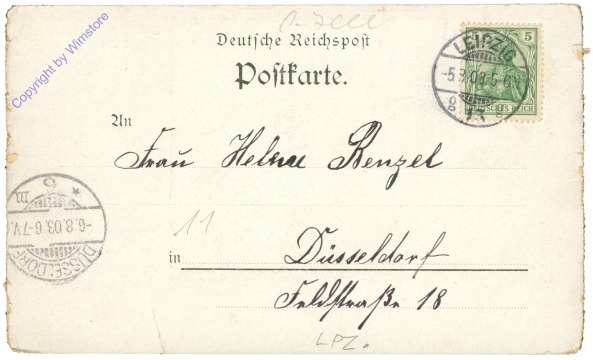 Copyright by Wimstore
Deutsche Reichspost
Postkarte.
LEIPZIG
5
DEUTSCHES REICH
An
Frau Helene Renzel
11
-6.8.03.6-7V.
DÜSSELDORF
in Düsseldorf
Feldstraße 18
LPZ.